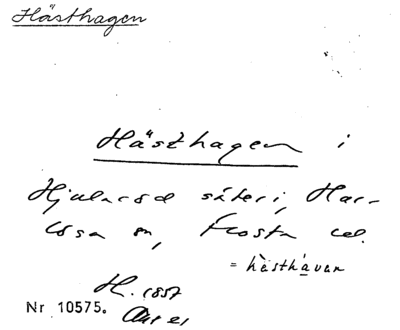 Hästhagen
Hästhagen i
Hjularöd säteri, Har-
lösa sn, Frosta hd.
= hèsthávan
H. 1887
Nr 10575.